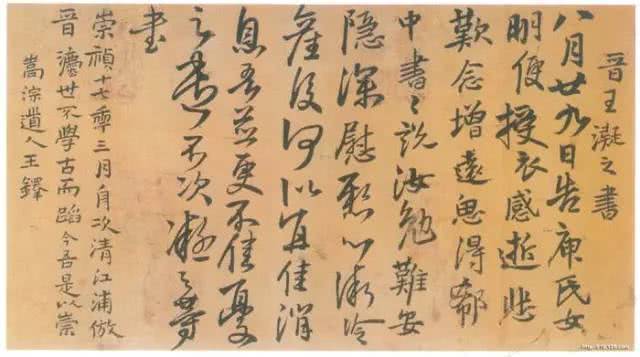 晉王凝之書
八月廿九日告庾氏女
明便授衣感逝悲
歎念增遠思得郗
中書〻說汝勉難安
隱深慰懸心漸冷
產後何似宜佳消
息吾並更不佳憂
之遣不次凝之等
書
崇禎十七季三月舟次清江浦倣
晉灋世不學古而蹈今吾是以崇
嵩淙道人王鐸